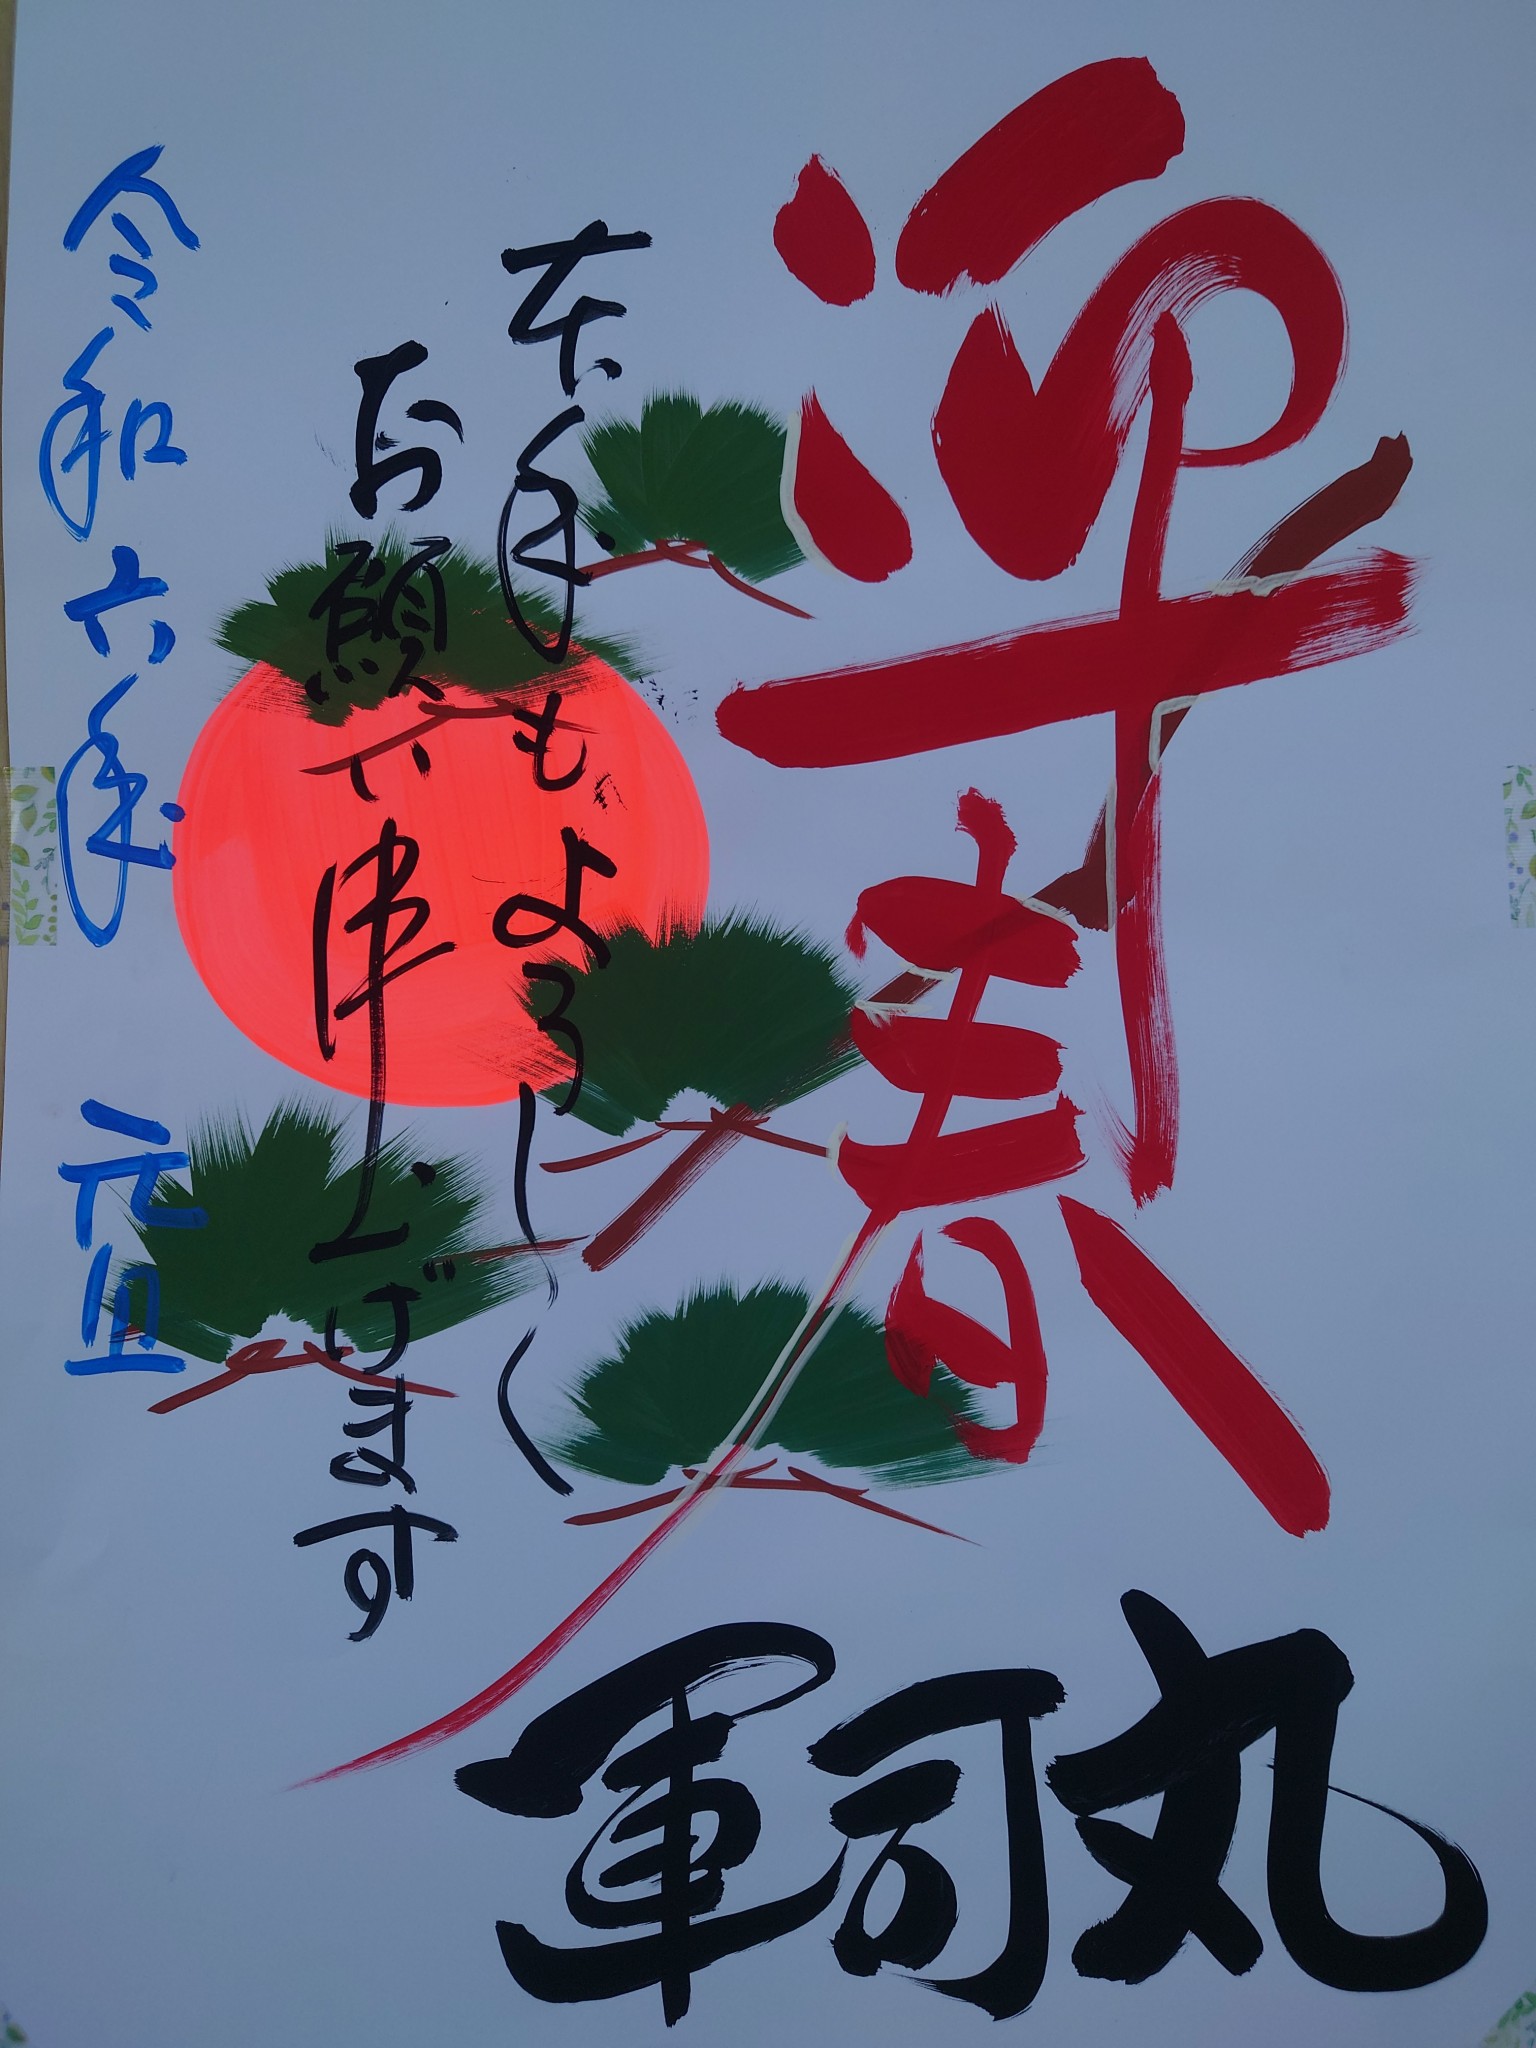 迎春
本年もよろしく
お願い申し上げます
令和六年 元旦
軍司丸